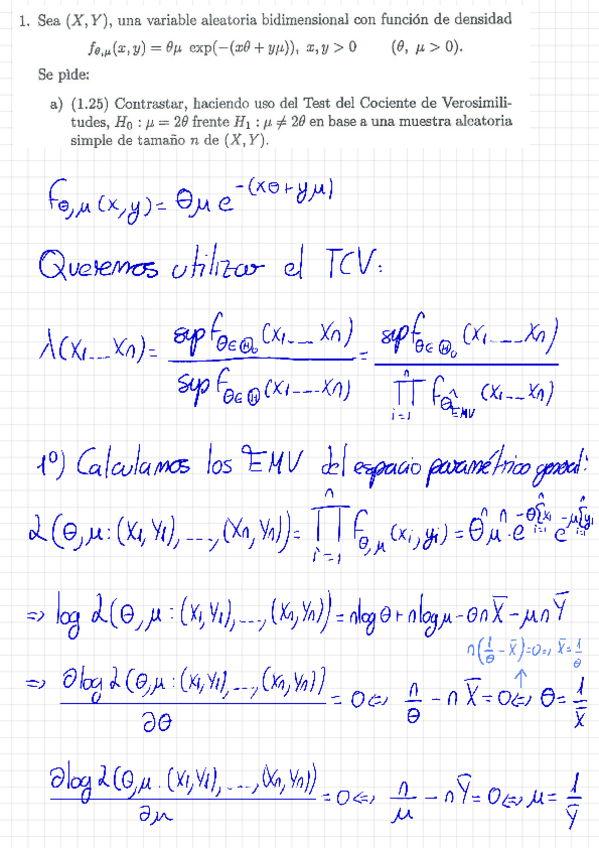 1. Sea (X, Y), una variable aleatoria bidimensional con función de densidad
f_{θ,μ}(x, y) = θμ exp(−(xθ + yμ)), x, y > 0 (θ, μ > 0).
Se pide:
a) (1.25) Contrastar, haciendo uso del Test del Cociente de Verosimili-
tudes, H₀ : μ = 2θ frente H₁ : μ ≠ 2θ en base a una muestra aleatoria
simple de tamaño n de (X, Y).
f_{θ,μ}(x,y) = θμ e^{-(xθ+yμ)}
Queremos utilizar el TCV:
λ(x₁...xₙ) = sup f_{θ∈Θ₀}(x₁...xₙ) / sup f_{θ∈Θ}(x₁...xₙ) = sup f_{θ∈Θ₀}(x₁...xₙ) / ∏_{i=1}^{n} f_{θ̂_{EMV}}(x₁...xₙ)
1º) Calculamos los EMV del espacio paramétrico general:
L(θ,μ : (x₁,y₁),...,(xₙ,yₙ)) = ∏_{i=1}^{n} f_{θ,μ}(xᵢ,yᵢ) = θⁿ μⁿ · e^{-θ∑_{i=1}^{n} xᵢ} e^{-μ∑_{i=1}^{n} yᵢ}
⇒ log L(θ,μ : (x₁,y₁),...,(xₙ,yₙ)) = n log θ + n log μ − θn X̄ − μn Ȳ
n(1/θ − X̄) = 0 ⇒ X̄ = 1/θ
⇒ ∂log L(θ,μ : (x₁,y₁),...,(xₙ,yₙ)) / ∂θ = 0 ⇔ n/θ − n X̄ = 0 ⇔ θ = 1/X̄
∂log L(θ,μ : (x₁,y₁),...,(xₙ,yₙ)) / ∂μ = 0 ⇔ n/μ − nȲ = 0 ⇔ μ = 1/Ȳ